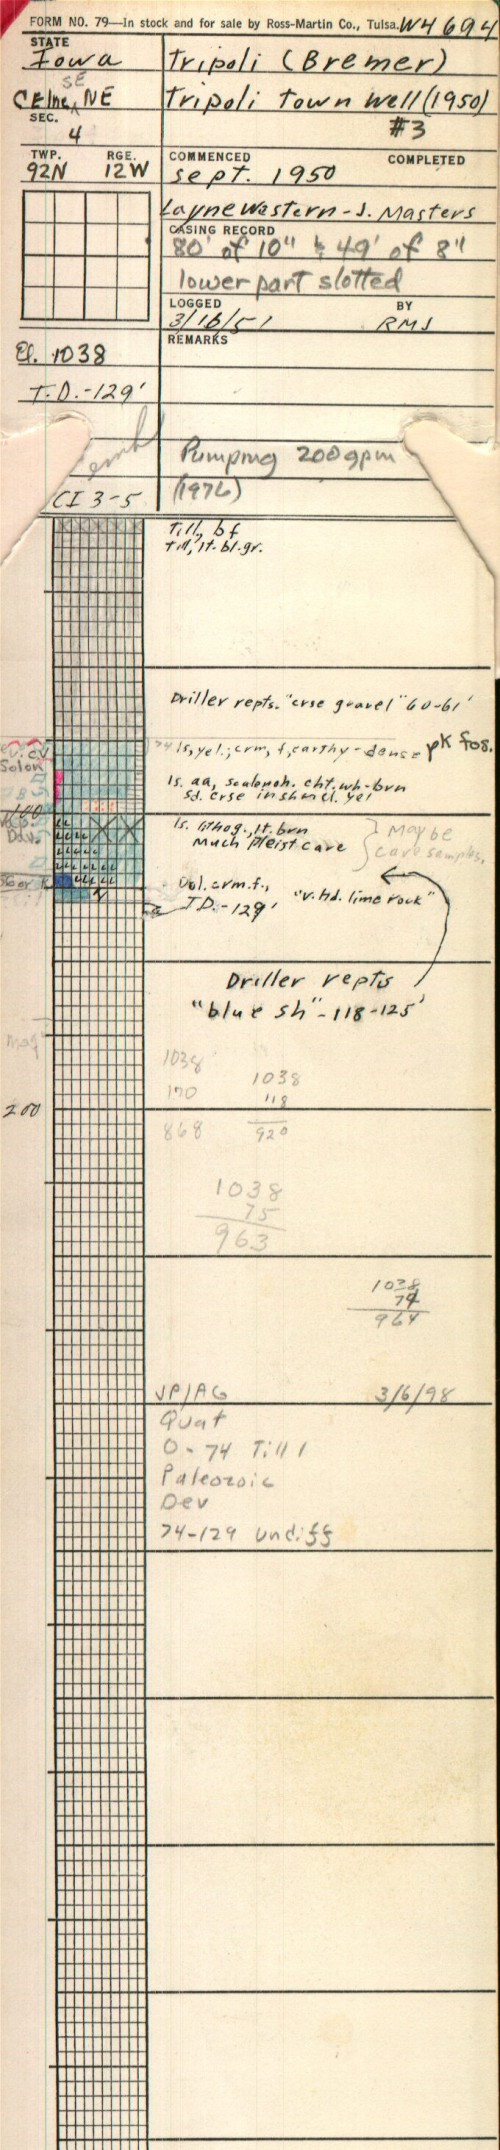 FORM NO. 79—In stock and for sale by Ross-Martin Co., Tulsa. W4694
STATE
Iowa
Tripoli (Bremer)
SE
CEline, NE
Tripoli Town Well (1950)
SEC.
4
#3
TWP. RGE.
92N 12W
COMMENCED COMPLETED
Sept. 1950
Layne Western - J. Masters
CASING RECORD
80' of 10" & 49' of 8"
lower part slotted
LOGGED BY
3/16/51 RMJ
REMARKS
El. 1038
T.D.-129'
Pumping 200 gpm
(1976)
CI 3-5
Till, bf
Till, lt. bl. gr.
Driller repts. "crse gravel" 60-61'
74 ls, yel., crm, f, earthy - dense pk fos.
Solon
ls. aa, scalenoh. cht. wh-brn
sd. crse in shmcl. yel
100
ls. lithog., lt. brn
Much pleist cave
Maybe
cave samples.
Dol. crm. f.,
"v. hd. lime rock"
T.D.-129'
Driller repts
"blue sh" - 118-125'
1038
170
868
1038
118
920
200
1038
75
963
1038
74
964
JP/AG 3/6/98
Quat
0-74 Till
Paleozoic
Dev
74-129 undiff